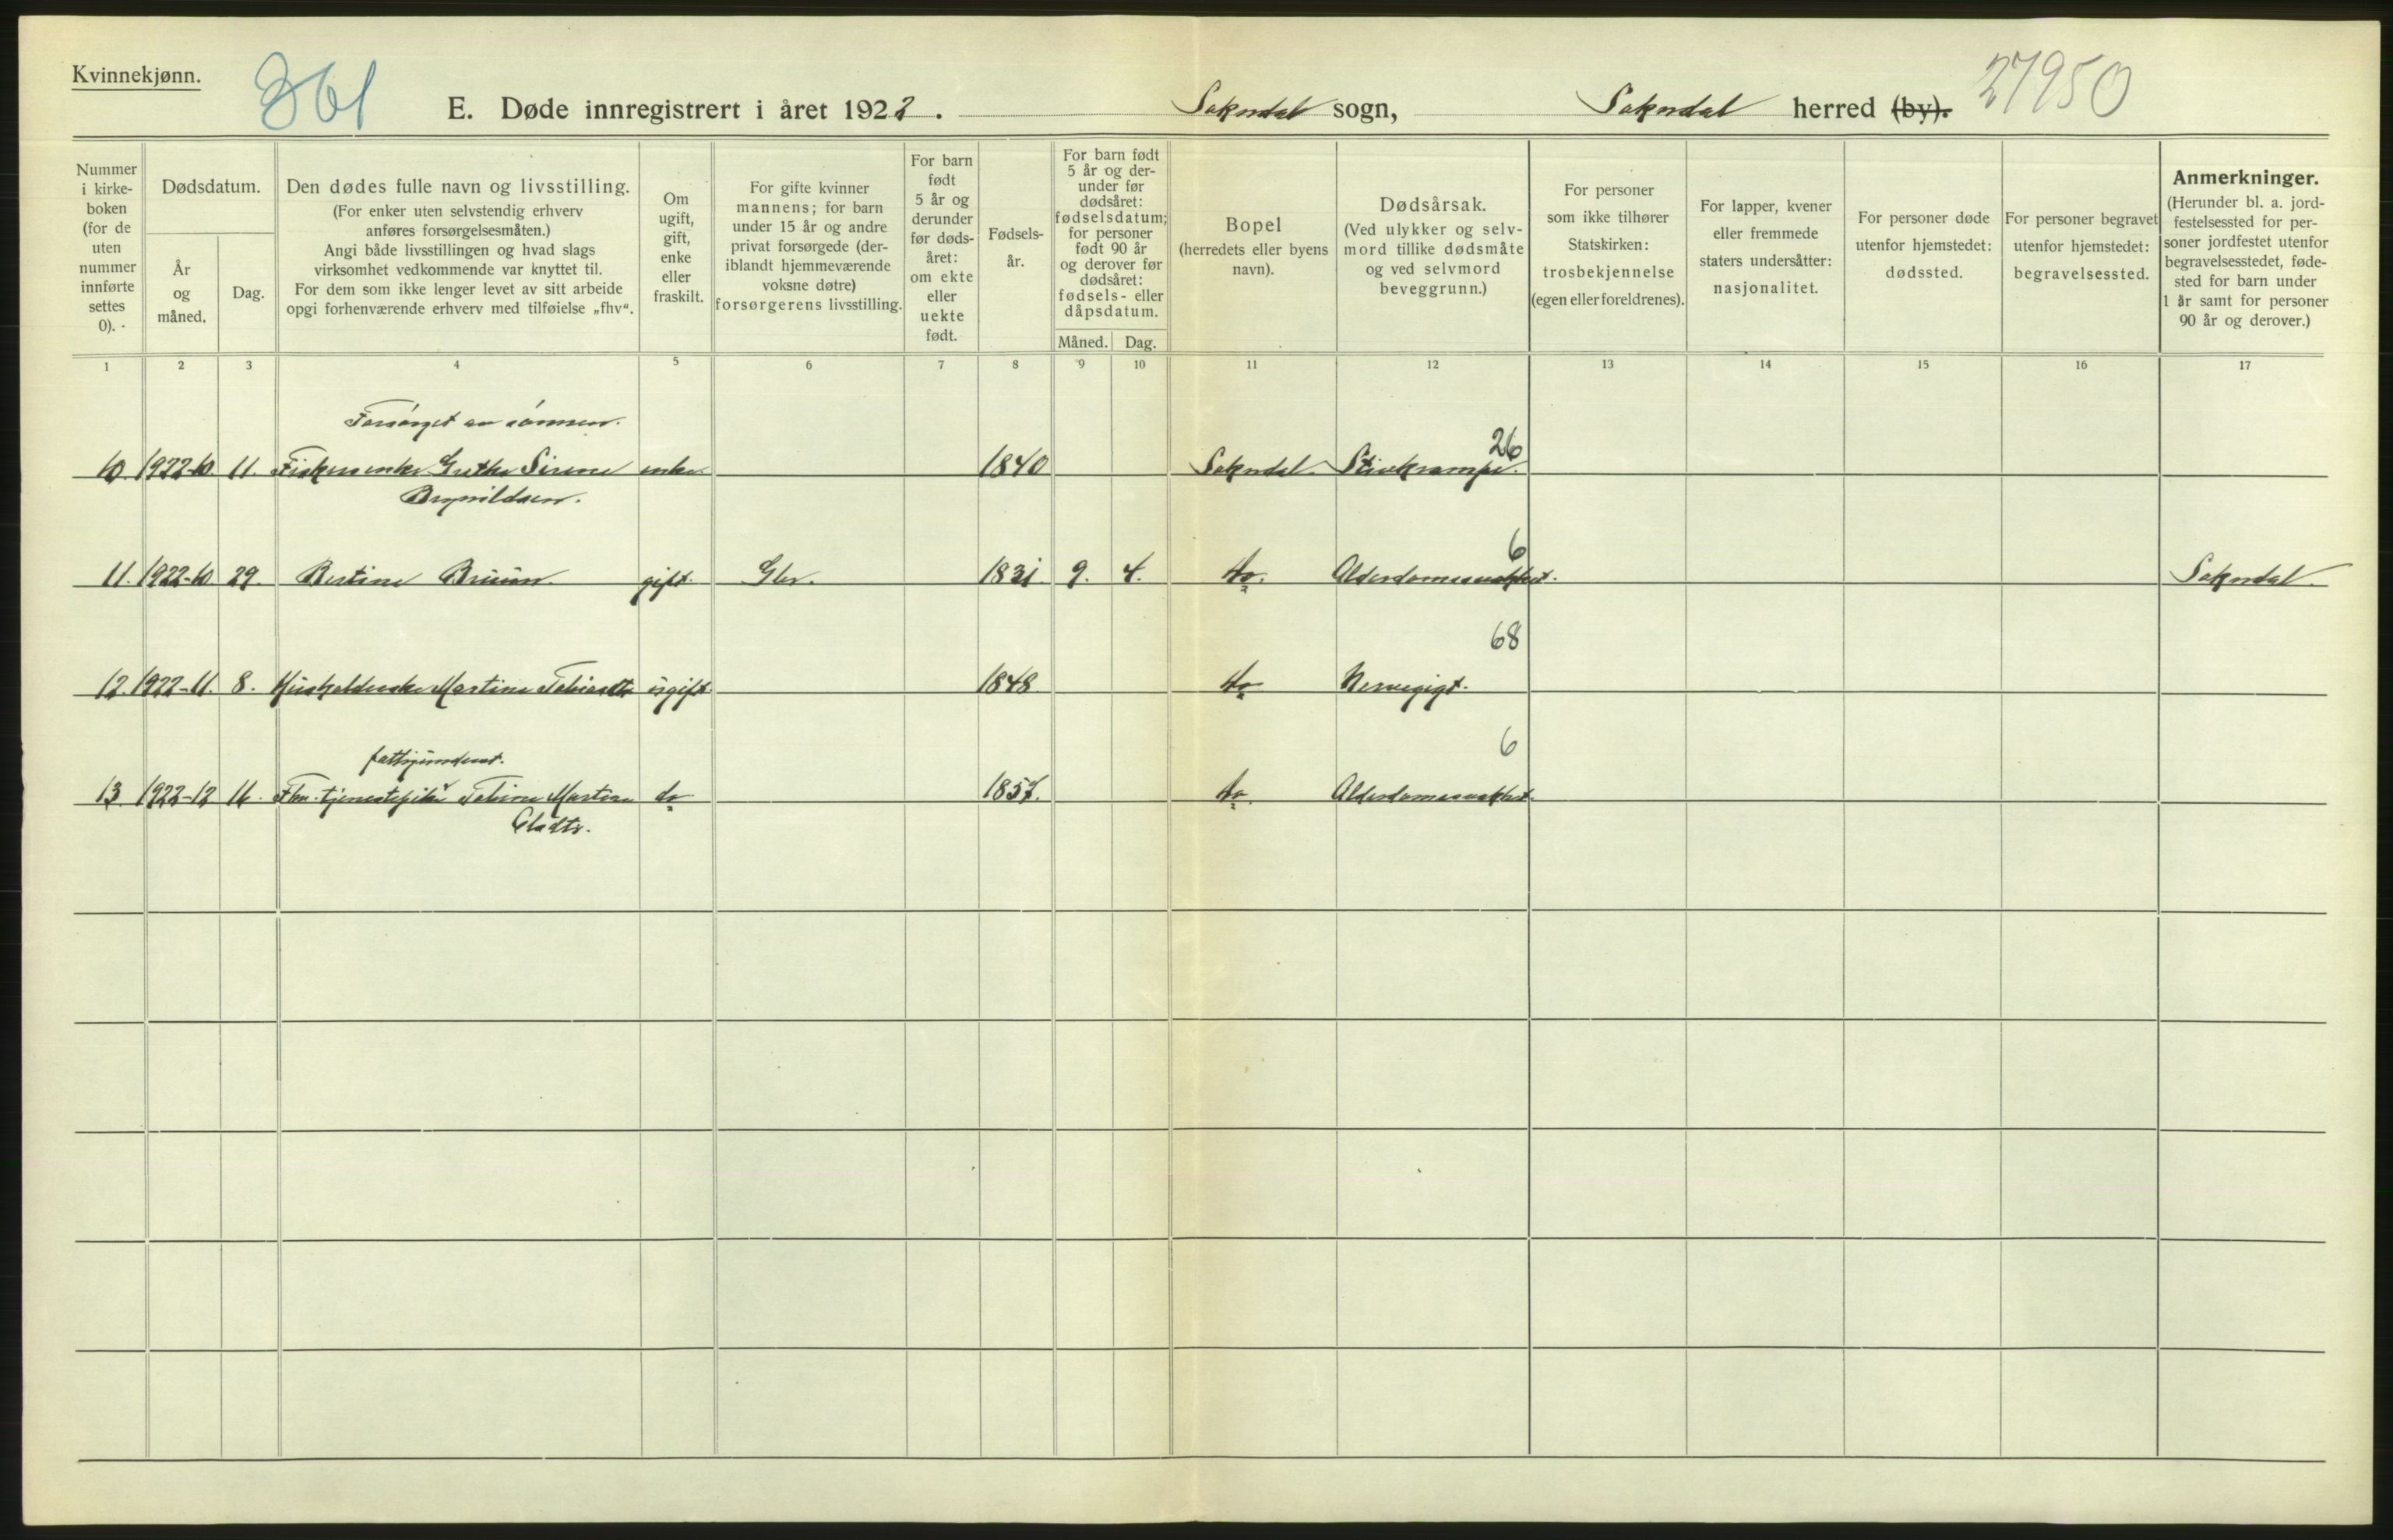 Kvinnekjønn.
361
E. Døde innregistrert i året 1922. Sokndal sogn, Sokndal herred (by).
27950
Nummer i kirkeboken (for de uten nummer innførte settes 0).
Dødsdatum.
År og måned.
Dag.
Den dødes fulle navn og livsstilling.
(For enker uten selvstendig erhverv
anføres forsørgelsesmåten.)
Angi både livsstillingen og hvad slags
virksomhet vedkommende var knyttet til.
For dem som ikke lenger levet av sitt arbeide
opgi forhenværende erhverv med tilføielse „fhv“.
Om ugift, gift, enke eller fraskilt.
For gifte kvinner
mannens; for barn
under 15 år og andre
privat forsørgede (der-
iblandt hjemmeværende
voksne døtre)
forsørgerens livsstilling.
For barn født 5 år og derunder før døds-året: om ekte eller uekte født.
Fødsels-
år.
For barn født
5 år og der-
under før
dødsåret:
fødselsdatum;
for personer
født 90 år
og derover før
dødsåret:
fødsels- eller
dåpsdatum.
Måned. Dag.
Bopel
(herredets eller byens
navn).
Dødsårsak.
(Ved ulykker og selv-
mord tillike dødsmåte
og ved selvmord
beveggrunn.)
For personer
som ikke tilhører
Statskirken:
trosbekjennelse
(egen eller foreldrenes).
For lapper, kvener
eller fremmede
staters undersåtter:
nasjonalitet.
For personer døde
utenfor hjemstedet:
dødssted.
For personer begravet
utenfor hjemstedet:
begravelsessted.
Anmerkninger.
(Herunder bl. a. jord-
festelsessted for per-
soner jordfestet utenfor
begravelsesstedet, føde-
sted for barn under
1 år samt for personer
90 år og derover.)
1 2 3 4 5 6 7 8 9 10 11 12 13 14 15 16 17
Forsørget av sønnen.
26
10. 1922-10. 11. Fiskerenke Grethe Sirene enke 1840 Sokndal. Stivkrampe.
6
11. 1922-10. 29. Bertine Bruun. gift. Gbr. 1831. 9. 4. do. Alderdomssvakhet. Sokndal.
68
12. 1922-11. 8. Husholderske Martine Tobiasdtr ugift. 1848. do Nervegigt.
fattigunderst.
6
13. 1922-12 16. Fhv. tjenestepike Tobine Martine do. 185 do. Alderdomssvakhet.